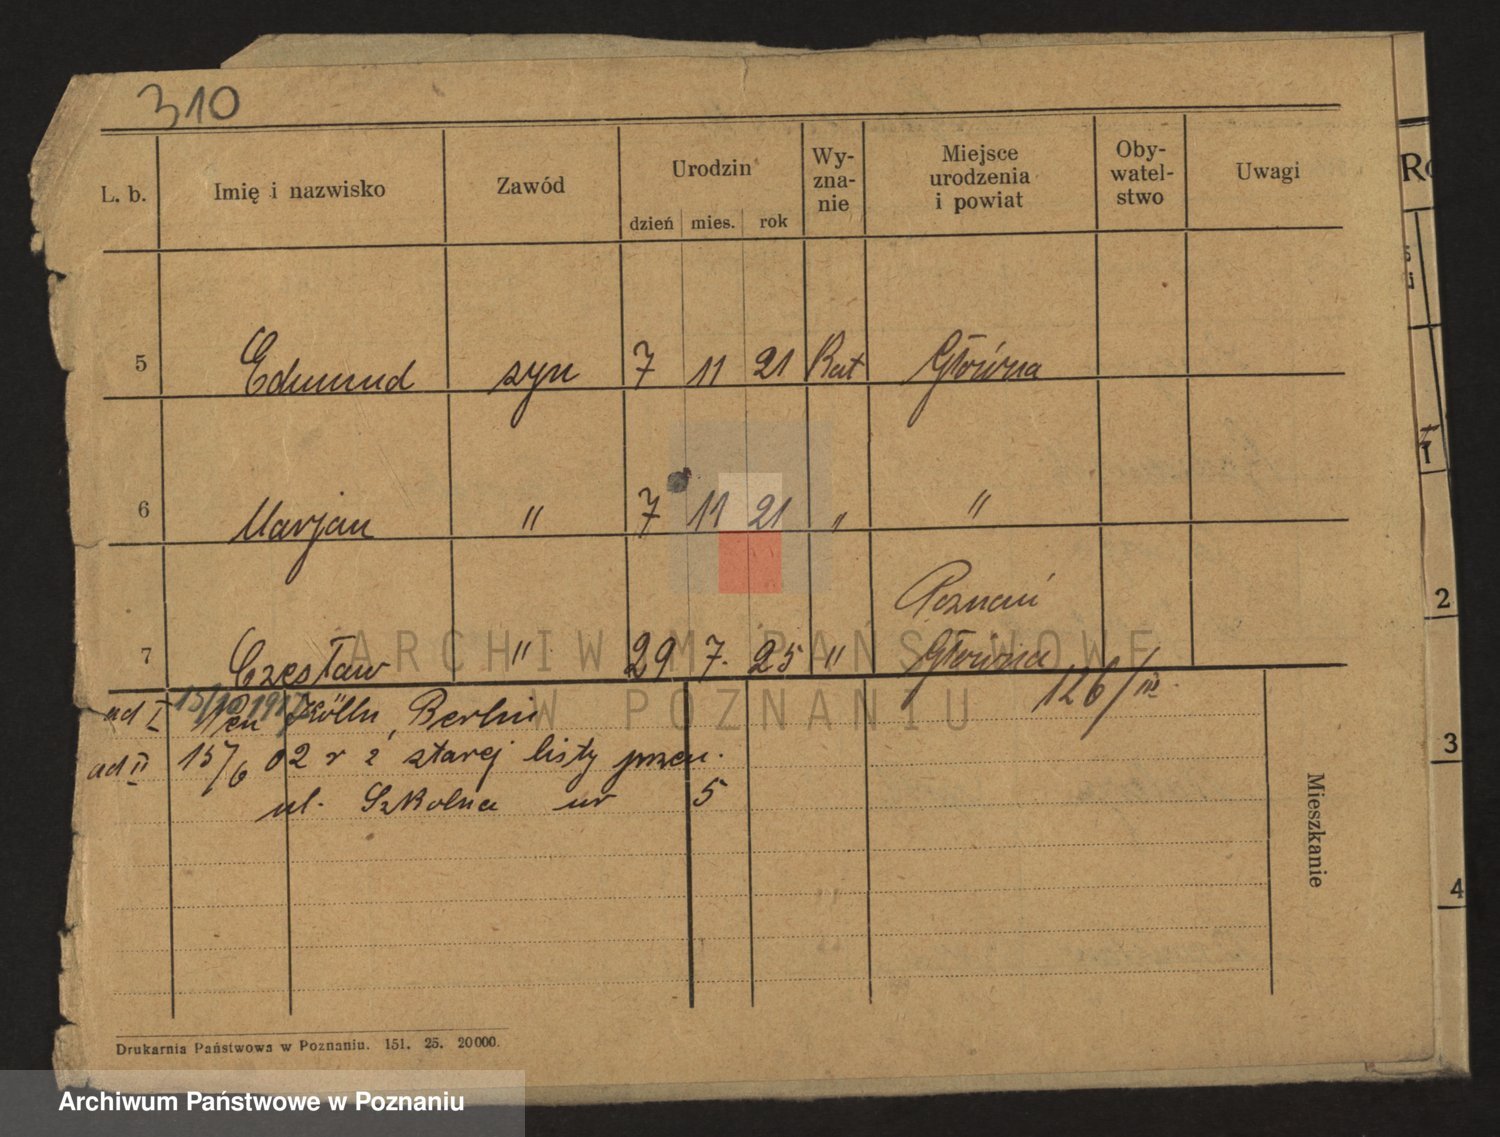 310
L. b. Imię i nazwisko Zawód Urodzin Wy-zna-nie Miejsce urodzenia i powiat Oby-watel-stwo Uwagi
dzień mies. rok
5 Edmund syn 7 11 21 Kat Główna
6 Marjan " 7 11 21 " "
Poznań
7 Czesław " 29 7. 25 " Główna
126/III.
ad I 15/10 1917 Kölln, Berlin
ad II 15/6 02 r z starej listy przen.
ul. Szkolna nr 5
Mieszkanie
Drukarnia Państwowa w Poznaniu. 151. 25. 20000.
2
3
4
ARCHIWUM PAŃSTWOWE
W POZNANIU
Archiwum Państwowe w Poznaniu